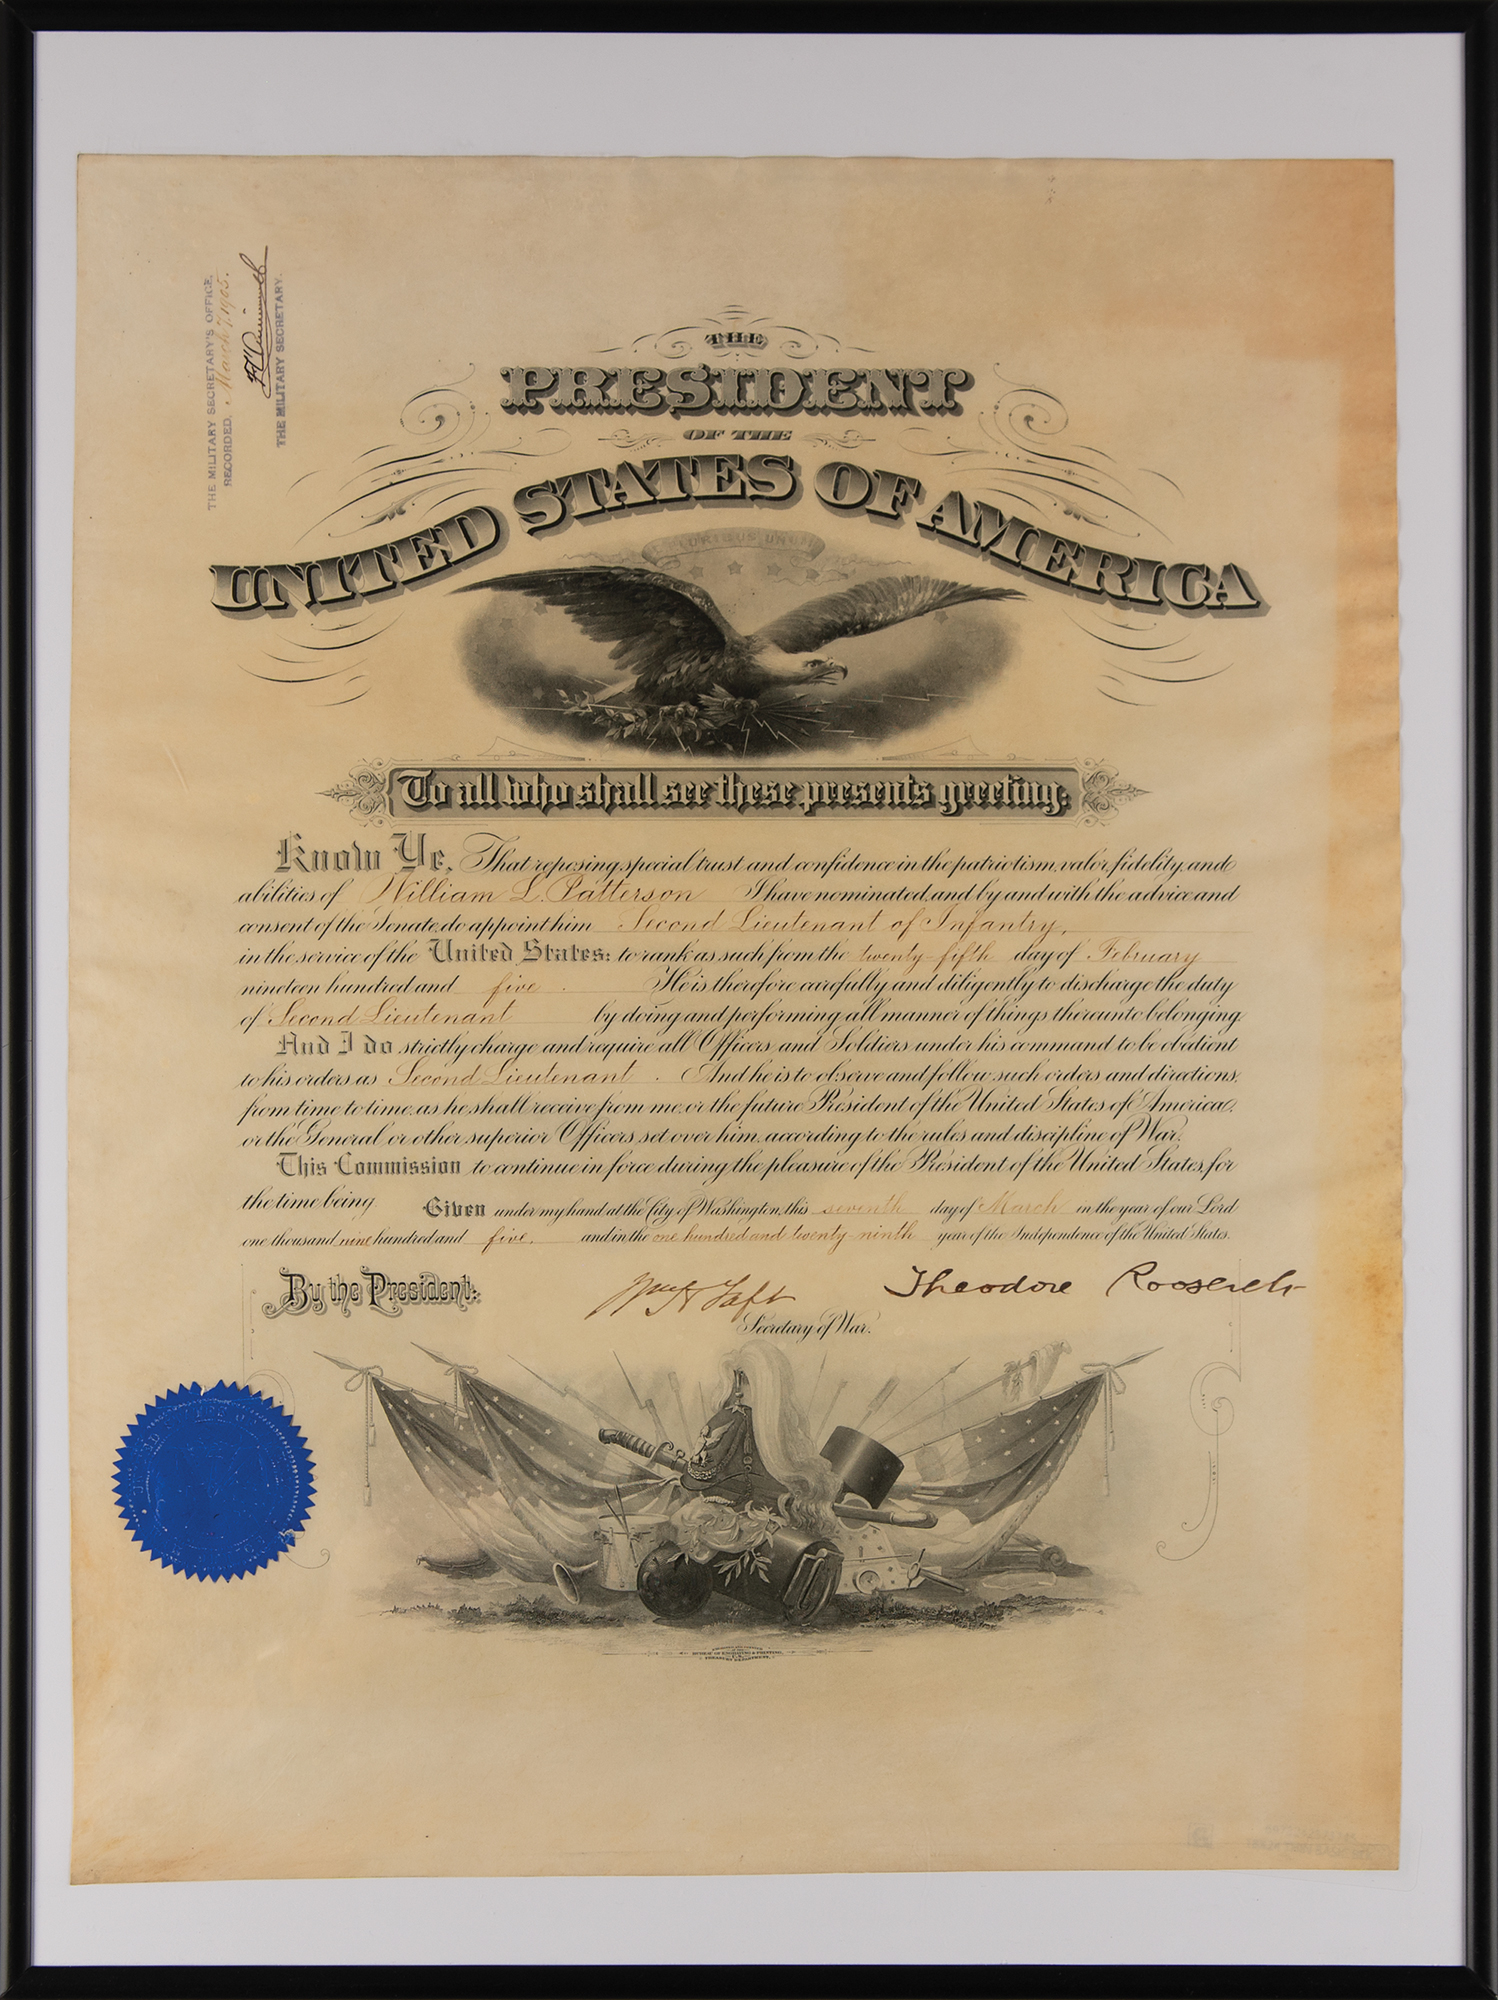 THE MILITARY SECRETARY'S OFFICE,
RECORDED, March 7, 1905.
THE MILITARY SECRETARY.
THE
PRESIDENT
OF THE
UNITED STATES OF AMERICA
PLURIBUS UNUM
To all who shall see these presents greeting:
Know Ye, That reposing special trust and confidence in the patriotism, valor, fidelity, and
abilities of William L. Patterson I have nominated, and by and with the advice and
consent of the Senate, do appoint him Second Lieutenant of Infantry,
in the service of the United States: to rank as such from the twenty-fifth day of February
nineteen hundred and five. He is therefore carefully and diligently to discharge the duty
of Second Lieutenant by doing and performing all manner of things thereunto belonging.
And I do strictly charge and require all Officers and Soldiers under his command to be obedient
to his orders as Second Lieutenant. And he is to observe and follow such orders and directions,
from time to time, as he shall receive from me, or the future President of the United States of America,
or the General or other superior Officers set over him, according to the rules and discipline of War.
This Commission to continue in force during the pleasure of the President of the United States, for
the time being. Given under my hand at the City of Washington, this seventh day of March in the year of our Lord
one thousand nine hundred and five, and in the one hundred and twenty-ninth year of the Independence of the United States.
By the President: Wm H Taft Theodore Roosevelt
Secretary of War.
BUREAU OF ENGRAVING & PRINTING,